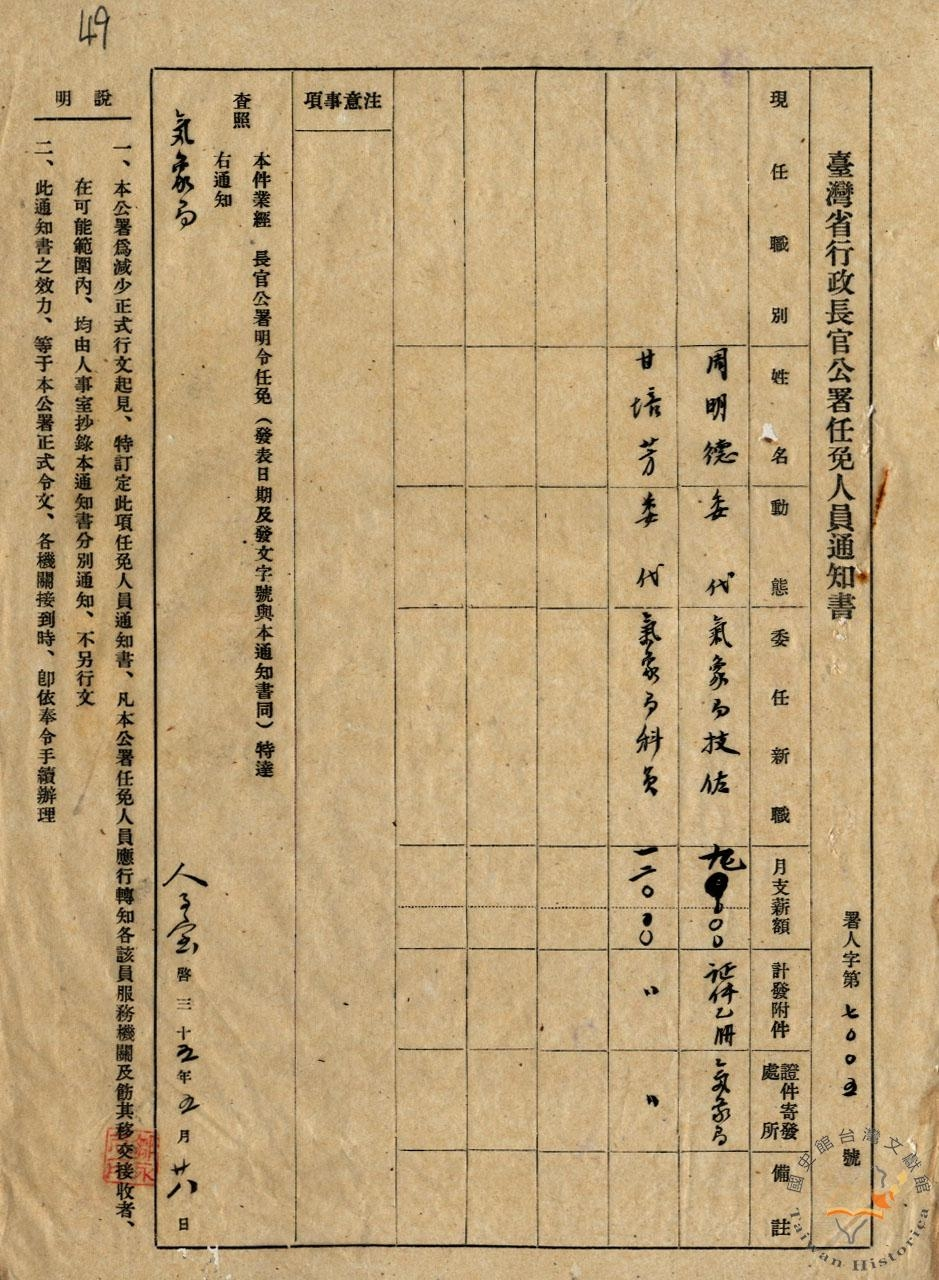 49
臺灣省行政長官公署任免人員通知書
署人字第七00五號
現任職別
姓名
動態
委任新職
月支薪額
計發附件
證件寄發處所
備註
周明德
委代
氣象局技佐
00
証件乙冊
氣象局
甘培芳
委代
氣象局科員
一二0 00
〃
〃
注意事項
本件業經 長官公署明令任免（發表日期及發文字號與本通知書同）特達
查照
右通知
氣象局
人事室啓三十五年五月廿八日
說明
一、本公署爲減少正式行文起見、特訂定此項任免人員通知書、凡本公署任免人員應行轉知各該員服務機關及飭其移交接收者、
在可能範圍內、均由人事室抄錄本通知書分別通知、不另行文
二、此通知書之效力、等于本公署正式令文、各機關接到時、卽依奉令手續辦理
國史館台灣文獻館
Taiwan Historica